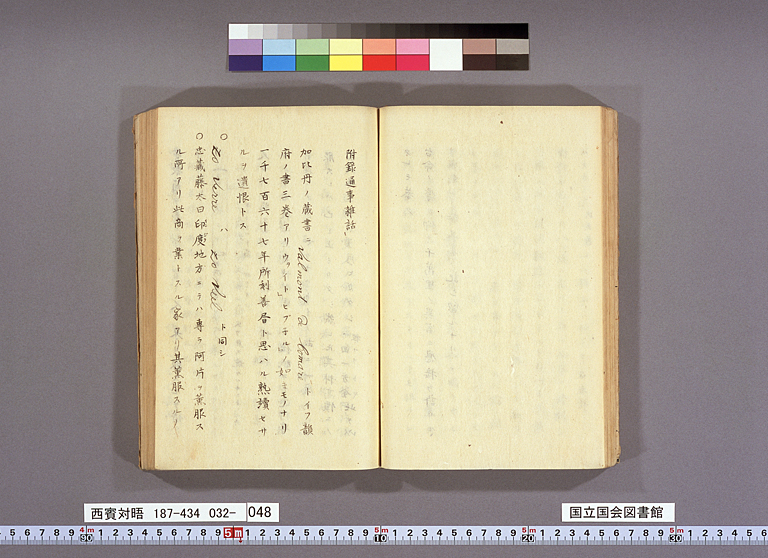 附録通事雑話
加比丹ノ蔵書ニ Valmont @ Bomare トイフ韻
府ノ書三巻アリウッイト」ヒブテルノ如キモノナリ
一千七百六十七年所刊善善ト思ハル熟讀セサ
ルヲ遺恨トス
○ zo verre ハ zo veel ト同シ
○忠蔵藤太曰印度地方ニテハ專ラ阿片ヲ薫服ス
ル所アリ此商ヲ業トスル家アリ其薫服スルノ
西賓対晤 187-434 032- 048
国立国会図書館